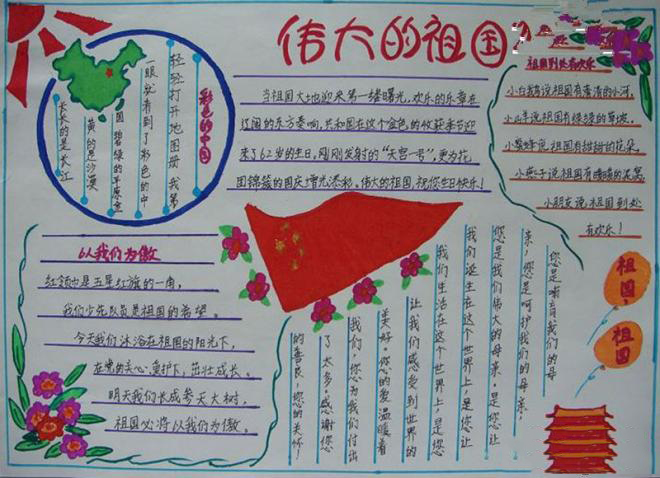 伟大的祖国
彩色的中国
轻轻打开地图册,我第
一眼就看到了彩色的中
国 碧绿的平原金
黄的是沙漠
长长的是长江
当祖国大地迎来第一缕曙光,欢乐的乐章在
辽阔的东方奏响,共和国在这个金色的收获季节迎
来了62岁的生日,刚刚发射的“天宫一号”,更为花
团锦簇的国庆增光添彩。伟大的祖国,祝您生日快乐!
祖国到处有欢乐
小白鹅说祖国有清清的小河,
小山羊说祖国有绿绿的草坡,
小蜜蜂说祖国有甜甜的花朵,
小燕子说祖国有暖暖的泥窝,
小朋友说祖国到处
有欢乐!
以我们为傲
红领巾是五星红旗的一角,
我们少先队员是祖国的希望。
今天我们沐浴在祖国的阳光下,
在党的关心爱护下,茁壮成长。
明天我们长成参天大树,
祖国必将以我们为傲。
您是哺育我们的母
亲,您是呵护我们的母亲,
您是我们伟大的母亲。是您让
我们诞生在这个世界上,是您让
我们生活在这个世界上,是您
让我们感受到世界的
美好。您的爱温暖着
我们,您为我们付出
了太多,感谢您
的善良,您的关怀!
祖国,
祖国